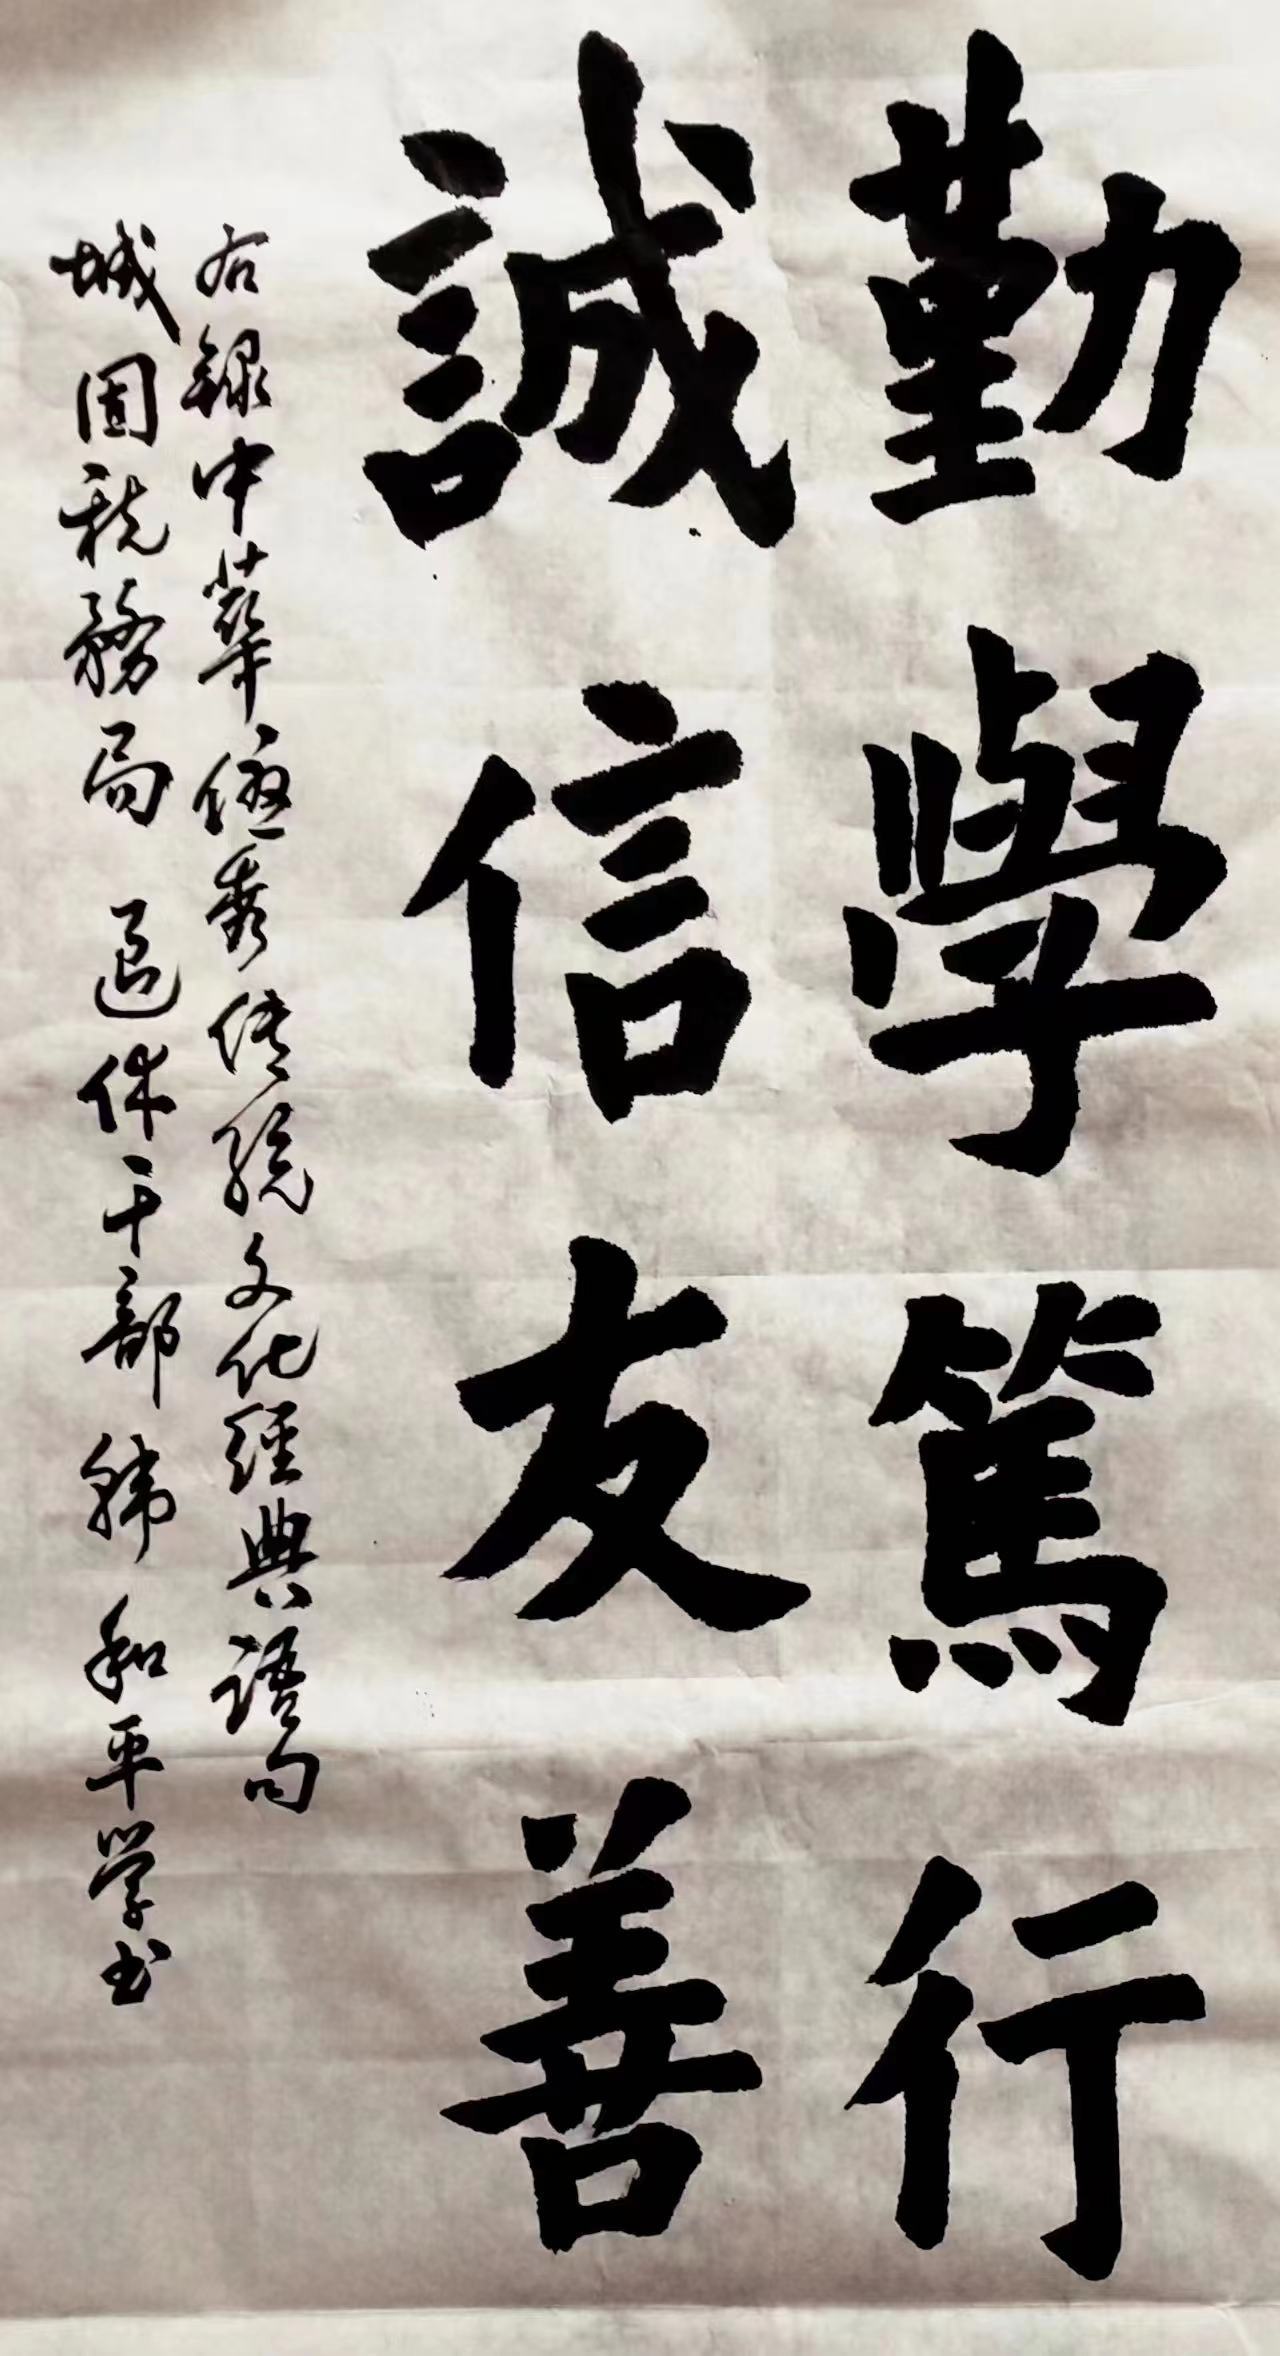 勤學篤行
誠信友善
右録中華優秀传統文化經典語句
城固税務局 退休干部 韩和平学书